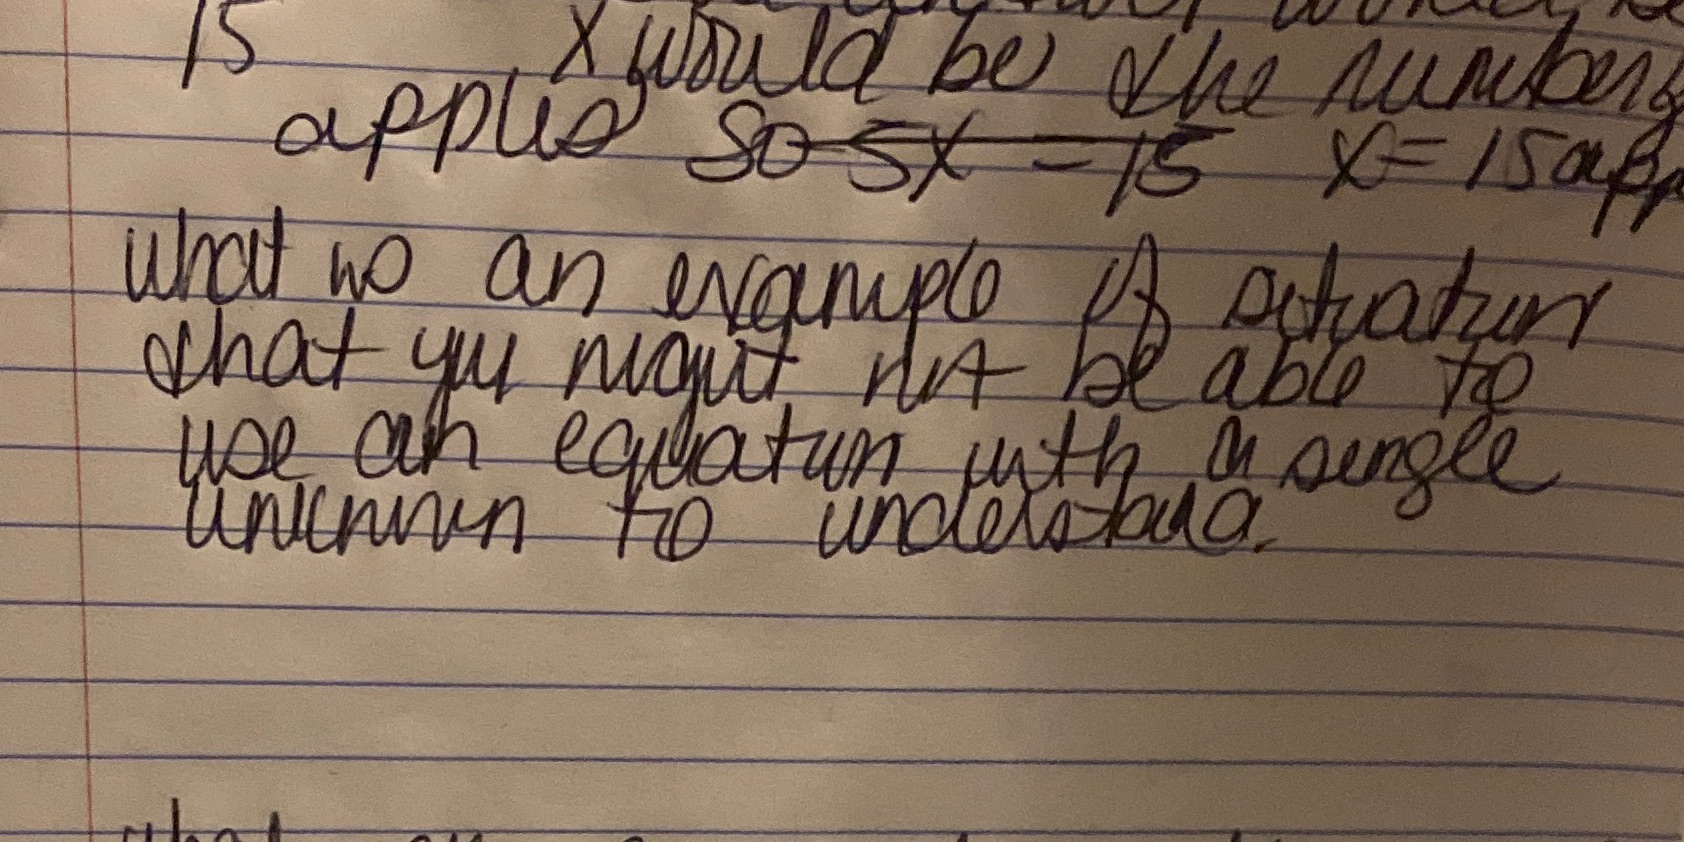 15 X would be the number
apples So 5x = 15 x = 15 app
what is an example of situation
that you might not be able to
use an equation with a single
unknown to understand.
what